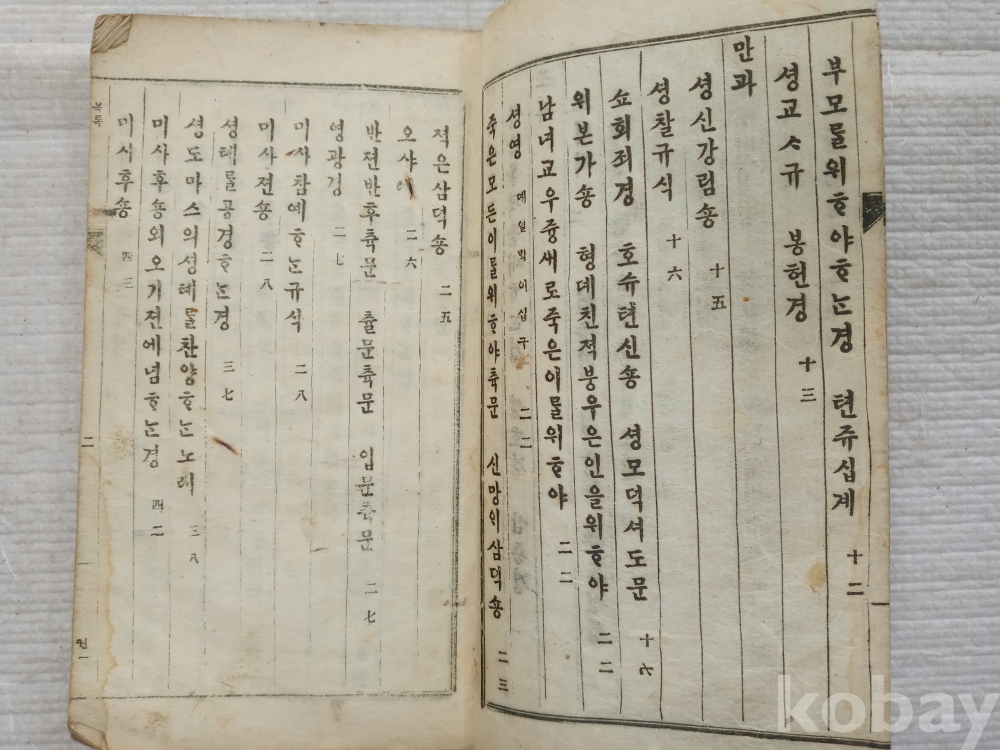 부모를위ᄒᆞ야ᄒᆞᄂᆞᆫ경 텬쥬십계 十二
셩교ᄉᆞ규 봉헌경 十三
만과
셩신강림숑 十五
셩찰규식 十六
쇼회죄경 호슈텬신숑 셩모덕셔도문 十六
위본가숑 형뎨친쳑붕우은인을위ᄒᆞ야 二二
남녀교우즁새로죽은이를위ᄒᆞ야 二二
셩영 매일 二二
죽은모든이를위ᄒᆞ야츅문 신망ᄋᆡ삼덕숑 二三
적은삼덕숑 二五
오샤례 二六
반젼반후츅문 츌문츅문 입문츅문 二七
영광경 二七
미사참예ᄒᆞᄂᆞᆫ규식 二八
미사젼숑 二八
셩톄를공경ᄒᆞᄂᆞᆫ경 三七
셩도마스의셩톄를찬양ᄒᆞᄂᆞᆫ노래 三八
미사후숑외오기젼에념ᄒᆞᄂᆞᆫ경 四二
미사후숑 四三
목록
二
kobay